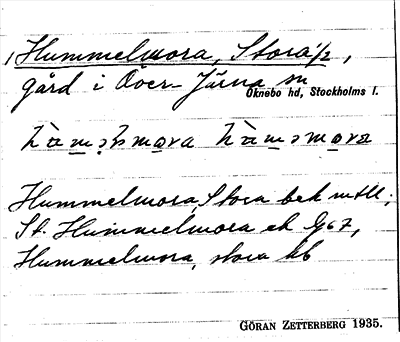 1 Hummelmora, Stora 1/2,
gård i Över-Järna sn
Öknebo hd, Stockholms l.
Hummelmora, Stora bek mtll;
St. Hummelmora ek G67,
Hummelmora, stora kb
GÖRAN ZETTERBERG 1935.